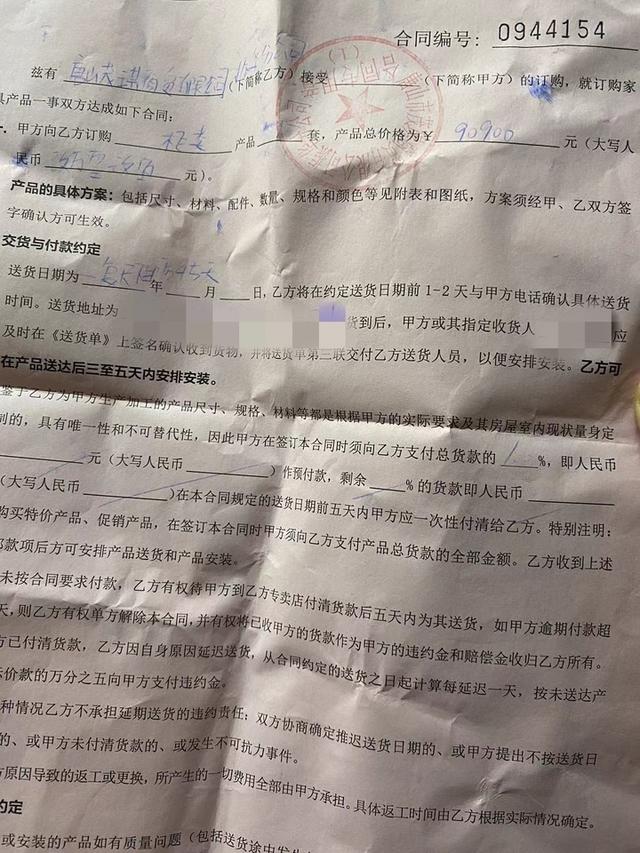 合同编号: 0944154
兹有 (下简称乙方) 接受 (下简称甲方) 的订购, 就订购家
具产品一事双方达成如下合同:
一. 甲方向乙方订购 产品 套, 产品总价格为¥ 90900 元 (大写人
民币 元)。
产品的具体方案: 包括尺寸、材料、配件、数量、规格和颜色等见附表和图纸, 方案须经甲、乙双方签
字确认方可生效。
交货与付款约定
送货日期为 年 月 日, 乙方将在约定送货日期前 1-2 天与甲方电话确认具体送货
时间。送货地址为 货到后, 甲方或其指定收货人 应
及时在《送货单》上签名确认收到货物, 并将送货单第三联交付乙方送货人员, 以便安排安装。乙方可
在产品送达后三至五天内安排安装。
鉴于乙方为甲方生产加工的产品尺寸、规格、材料等都是根据甲方的实际要求及其房屋室内现状量身定
制的, 具有唯一性和不可替代性, 因此甲方在签订本合同时须向乙方支付总货款的 %, 即人民
元 (大写人民币 ) 作预付款, 剩余 % 的货款即人民币
(大写人民币 ) 在本合同规定的送货日期前五天内甲方应一次性付清给乙方。特别注明:
购买特价产品、促销产品, 在签订本合同时甲方须向乙方支付产品总货款的全部金额。乙方收到上述
款项后方可安排产品送货和产品安装。
未按合同要求付款, 乙方有权待甲方到乙方专卖店付清货款后五天内为其送货, 如甲方逾期付款超
天, 则乙方有权单方解除本合同, 并有权将已收甲方的货款作为甲方的违约金和赔偿金收归乙方所有。
方已付清货款, 乙方因自身原因延迟送货, 从合同约定的送货之日起计算每延迟一天, 按未送达产
价款的万分之五向甲方支付违约金。
种情况乙方不承担延期送货的违约责任: 双方协商确定推迟送货日期的、或甲方提出不按送货日
的、或甲方未付清货款的、或发生不可抗力事件。
方原因导致的返工或更换, 所产生的一切费用全部由甲方承担。具体返工时间由乙方根据实际情况确定。
约定
或安装的产品如有质量问题 (包括送货途中发生